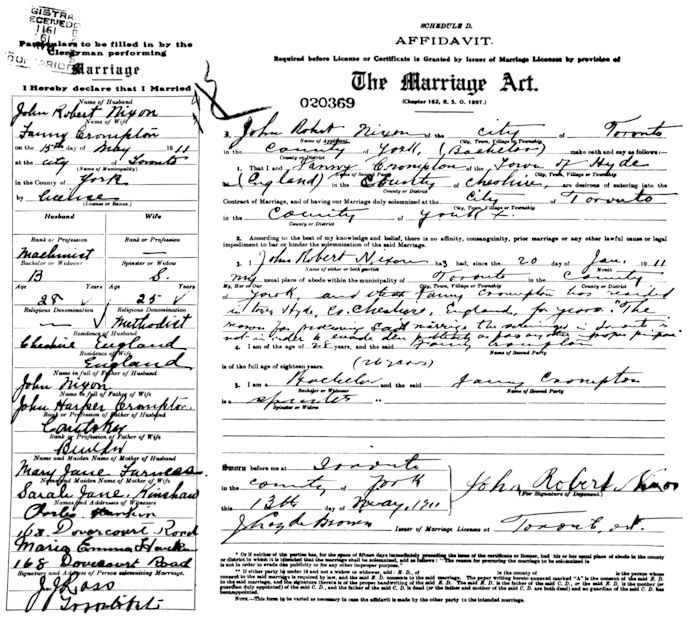 REGISTRA
RECEIVED
1161
Particulars to be filled in by the
Clergyman performing
Marriage
I Hereby declare that I Married
Name of Husband
John Robert Nixon
Name of Wife
Fanny Crompton
on the 15th day of May 1911
at the city of Toronto
(Name of Municipality)
in the County of York
by license
(License or Banns.)
Husband Wife
Rank or Profession Rank or Profession
Machinist
Bachelor or Widower Spinster or Widow
B S.
Age Age
28 25
Religious Denomination Religious Denomination
Methodist
Residence of Husband
Cheshire England
Residence of Wife
England
Name in full of Father of Husband
John Nixon
Name in full of Father of Wife
John Harper Crompton
Rank or Profession of Father of Husband
Rank or Profession of Father of Wife
Name and Maiden Name of Mother of Husband
Mary Jane Furness
Name and Maiden Name of Mother of Wife
Sarah Jane
Names and Addresses of Witnesses
Charles
168 Dovercourt Road
Maria Emma
168 Dovercourt Road
Signature and Address of Person solemnizing Marriage.
SCHEDULE D.
AFFIDAVIT.
Required before License or Certificate is Granted by Issuer of Marriage Licenses by provision of
The Marriage Act.
020369 (Chapter 162, R. S. O. 1897.)
I, John Robert Nixon of the city of Toronto
Name of Applicant City, Town, Village or Township
in the County of York, (Bachelor) make oath and say as follows:
County or District
1. That I and Fanny Crompton of the Town of Hyde
Name of Second Party City, Town, Village or Township
(England) in the County of Cheshire, are desirous of entering into the
County or District
Contract of Marriage, and of having our Marriage duly solemnized at the City of Toronto
City, Town, Village or Township
in the County of York
County or District
2. According to the best of my knowledge and belief, there is no affinity, consanguinity, prior marriage or any other lawful cause or legal
impediment to bar or hinder the solemnization of the said Marriage.
3. I John Robert Nixon had, since the 20 day of Jan. 1911
Name of either or both parties Month
my usual place of abode within the municipality of Toronto in the County
My, His or Our City, Town, Village or Township County or District
of York, and Fanny Crompton has resided
in Hyde, Co. Cheshire, England, for years. "The
reason for procuring said marriage
4. I am of the age of 28 years, and the said Fanny Crompton
Name of Second Party
is of the full age of eighteen years. (26 years)
5. I am a Bachelor and the said Fanny Crompton
Bachelor or Widower Name of Second Party
is a spinster "
Spinster or Widow
Sworn before me at Toronto
in the county of York
this 13th of May, 1911
John Robert Nixon
(For Signature of Deponent.)
Issuer of Marriage Licenses at Toronto, Ont.
* Or if neither of the parties has, for the space of fifteen days immediately preceding the issue of the certificate or license, had his or her usual place of abode in the county
or district in which it is intended that the marriage shall be solemnized, add as follows: "The reason for procuring the marriage to be solemnized in
is not in order to evade due publicity or for any other improper purpose."
** If either party be under 18 and not a widower or widow, add: E. D., of in the county of is the person whose
consent to the said marriage is required by law, and the said E. D. consents to the said marriage. The paper writing hereto annexed marked "A" is the consent of the said E. D.
to the said marriage, and the signature thereto is of the proper handwriting of the said E. D. The said E. D. is the father of the said C. D., or the said E. D. is the mother of (or
guardian duly appointed) of the said C. D., and the father of the said C. D. is dead (or the father and mother of the said C. D. are both dead) and no guardian of the said C. D. has
been appointed.
NOTE.—This form to be varied as necessary in case the affidavit is made by the other party to the intended marriage.